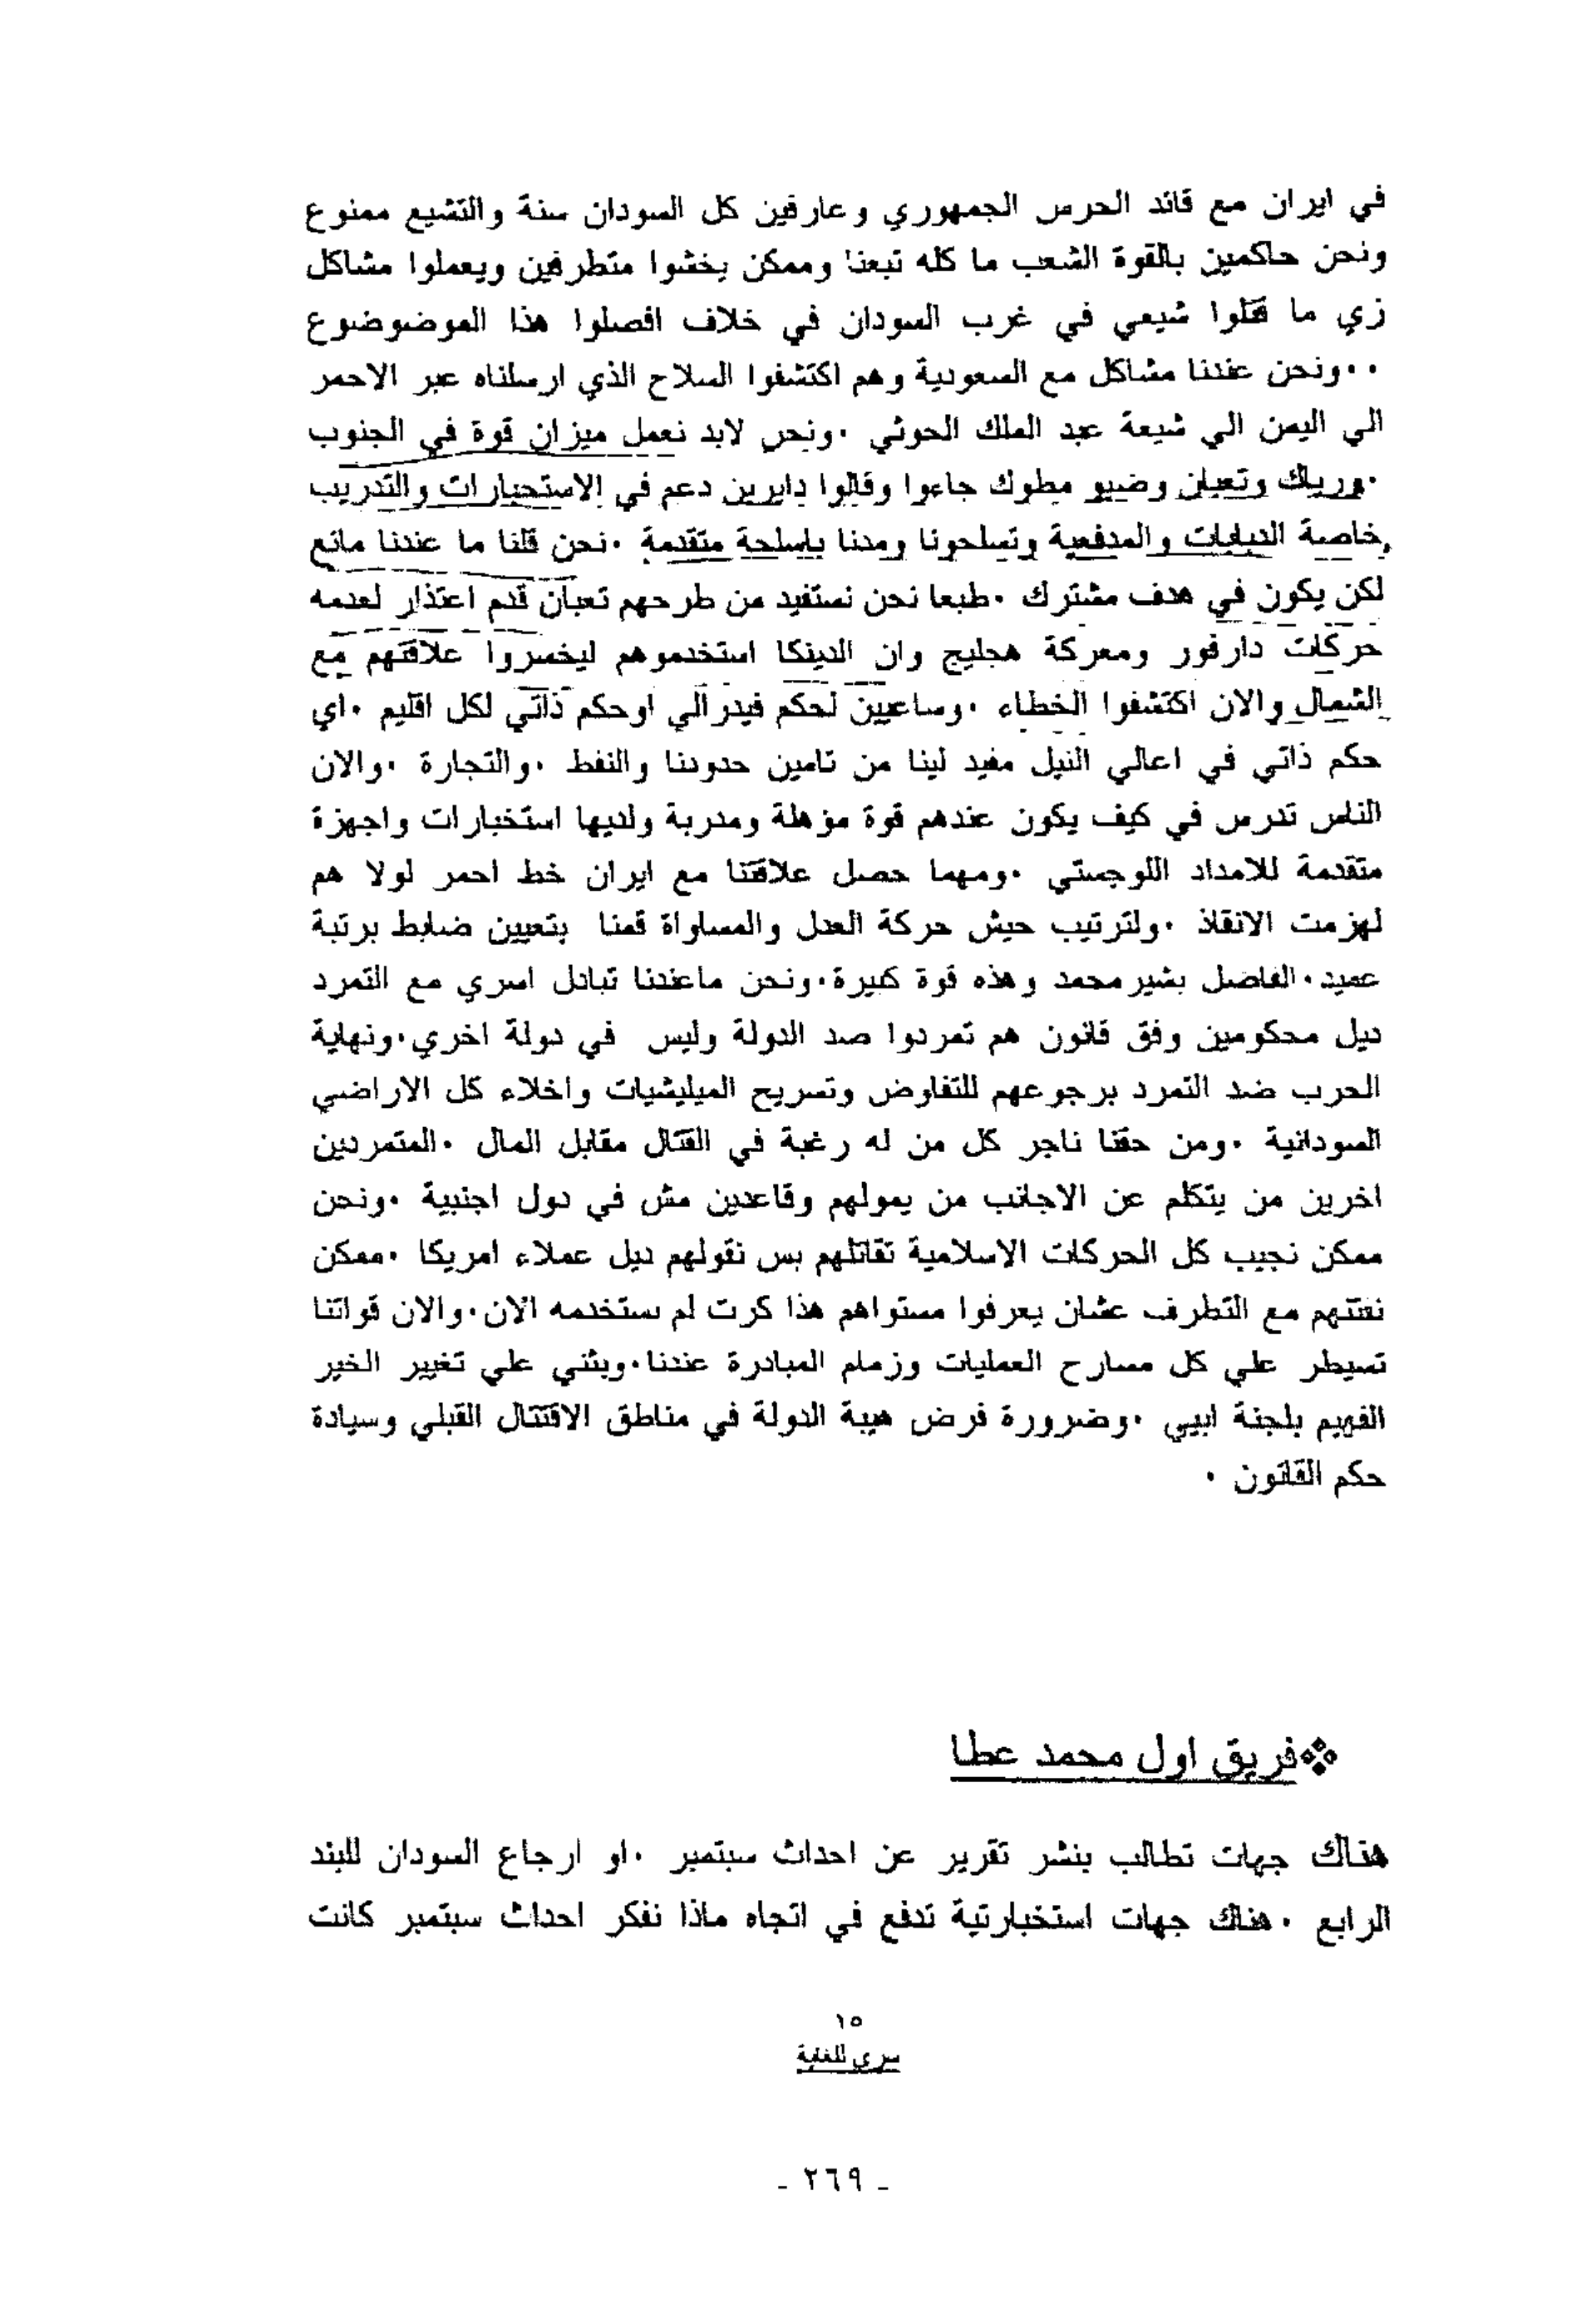 في ايران مع قائد الحرس الجمهوري وعارفين كل السودان سنة والتشيع ممنوع
ونحن حاكمين بالقوة الشعب ما كله تبعنا وممكن يخشوا متطرفين ويعملوا مشاكل
زي ما قتلوا شيعي في غرب السودان في خلاف افصلوا هذا الموضوضوع
..ونحن عندنا مشاكل مع السعودية وهم اكتشفوا السلاح الذي ارسلناه عبر الاحمر
الي اليمن الي شيعة عبد الملك الحوثي .ونحن لابد نعمل ميزان قوة في الجنوب
.ورياك وتعبان وضيو مطوك جاءوا وقالوا دايرين دعم في الاستخبارات والتدريب
خاصة الدبابات والمدفعية وتسلحونا ومدنا باسلحة متقدمة .نحن قلنا ما عندنا مانع
لكن يكون في هدف مشترك .طبعا نحن نستفيد من طرحهم تعبان قدم اعتذار لعدمه
حركات دارفور ومعركة هجليج وان الدينكا استخدموهم ليخسروا علاقتهم مع
الشمال والان اكتشفوا الخطاء .وساعيين لحكم فيدرالي اوحكم ذاتي لكل اقليم .اي
حكم ذاتي في اعالي النيل مفيد لينا من تامين حدودنا والنفط .والتجارة .والان
الناس تدرس في كيف يكون عندهم قوة مؤهلة ومدربة ولديها استخبارات واجهزة
متقدمة للامداد اللوجستي .ومهما حصل علاقتنا مع ايران خط احمر لولا هم
لهزمت الانقاذ .ولترتيب حيش حركة العدل والمساواة قمنا بتعيين ضابط برتبة
عميد.الفاضل بشيرمحمد وهذه قوة كبيرة.ونحن ماعندنا تبادل اسري مع التمرد
ديل محكومين وفق قانون هم تمردوا صد الدولة وليس في دولة اخري.ونهاية
الحرب ضد التمرد برجوعهم للتفاوض وتسريح الميليشيات واخلاء كل الاراضي
السودانية .ومن حقنا ناجر كل من له رغبة في القتال مقابل المال .المتمردين
اخرين من يتكلم عن الاجانب من يمولهم وقاعدين مش في دول اجنبية .ونحن
ممكن نجيب كل الحركات الاسلامية تقاتلهم بس نقولهم ديل عملاء امريكا .ممكن
نفتنهم مع التطرف عشان يعرفوا مستواهم هذا كرت لم نستخدمه الان.والان قواتنا
تسيطر علي كل مسارح العمليات وزمام المبادرة عندنا.ويثني علي تغيير الخير
الفهيم بلجنة ابيي .وضرورة فرض هيبة الدولة في مناطق الاقتتال القبلي وسيادة
حكم القانون .
❖فريق اول محمد عطا
هناك جهات تطالب بنشر تقرير عن احداث سبتمبر .او ارجاع السودان للبند
الرابع .هناك جهات استخبارتية تدفع في اتجاه ماذا نفكر احداث سبتمبر كانت
١٥
سري للغاية
- ٢٦٩ -